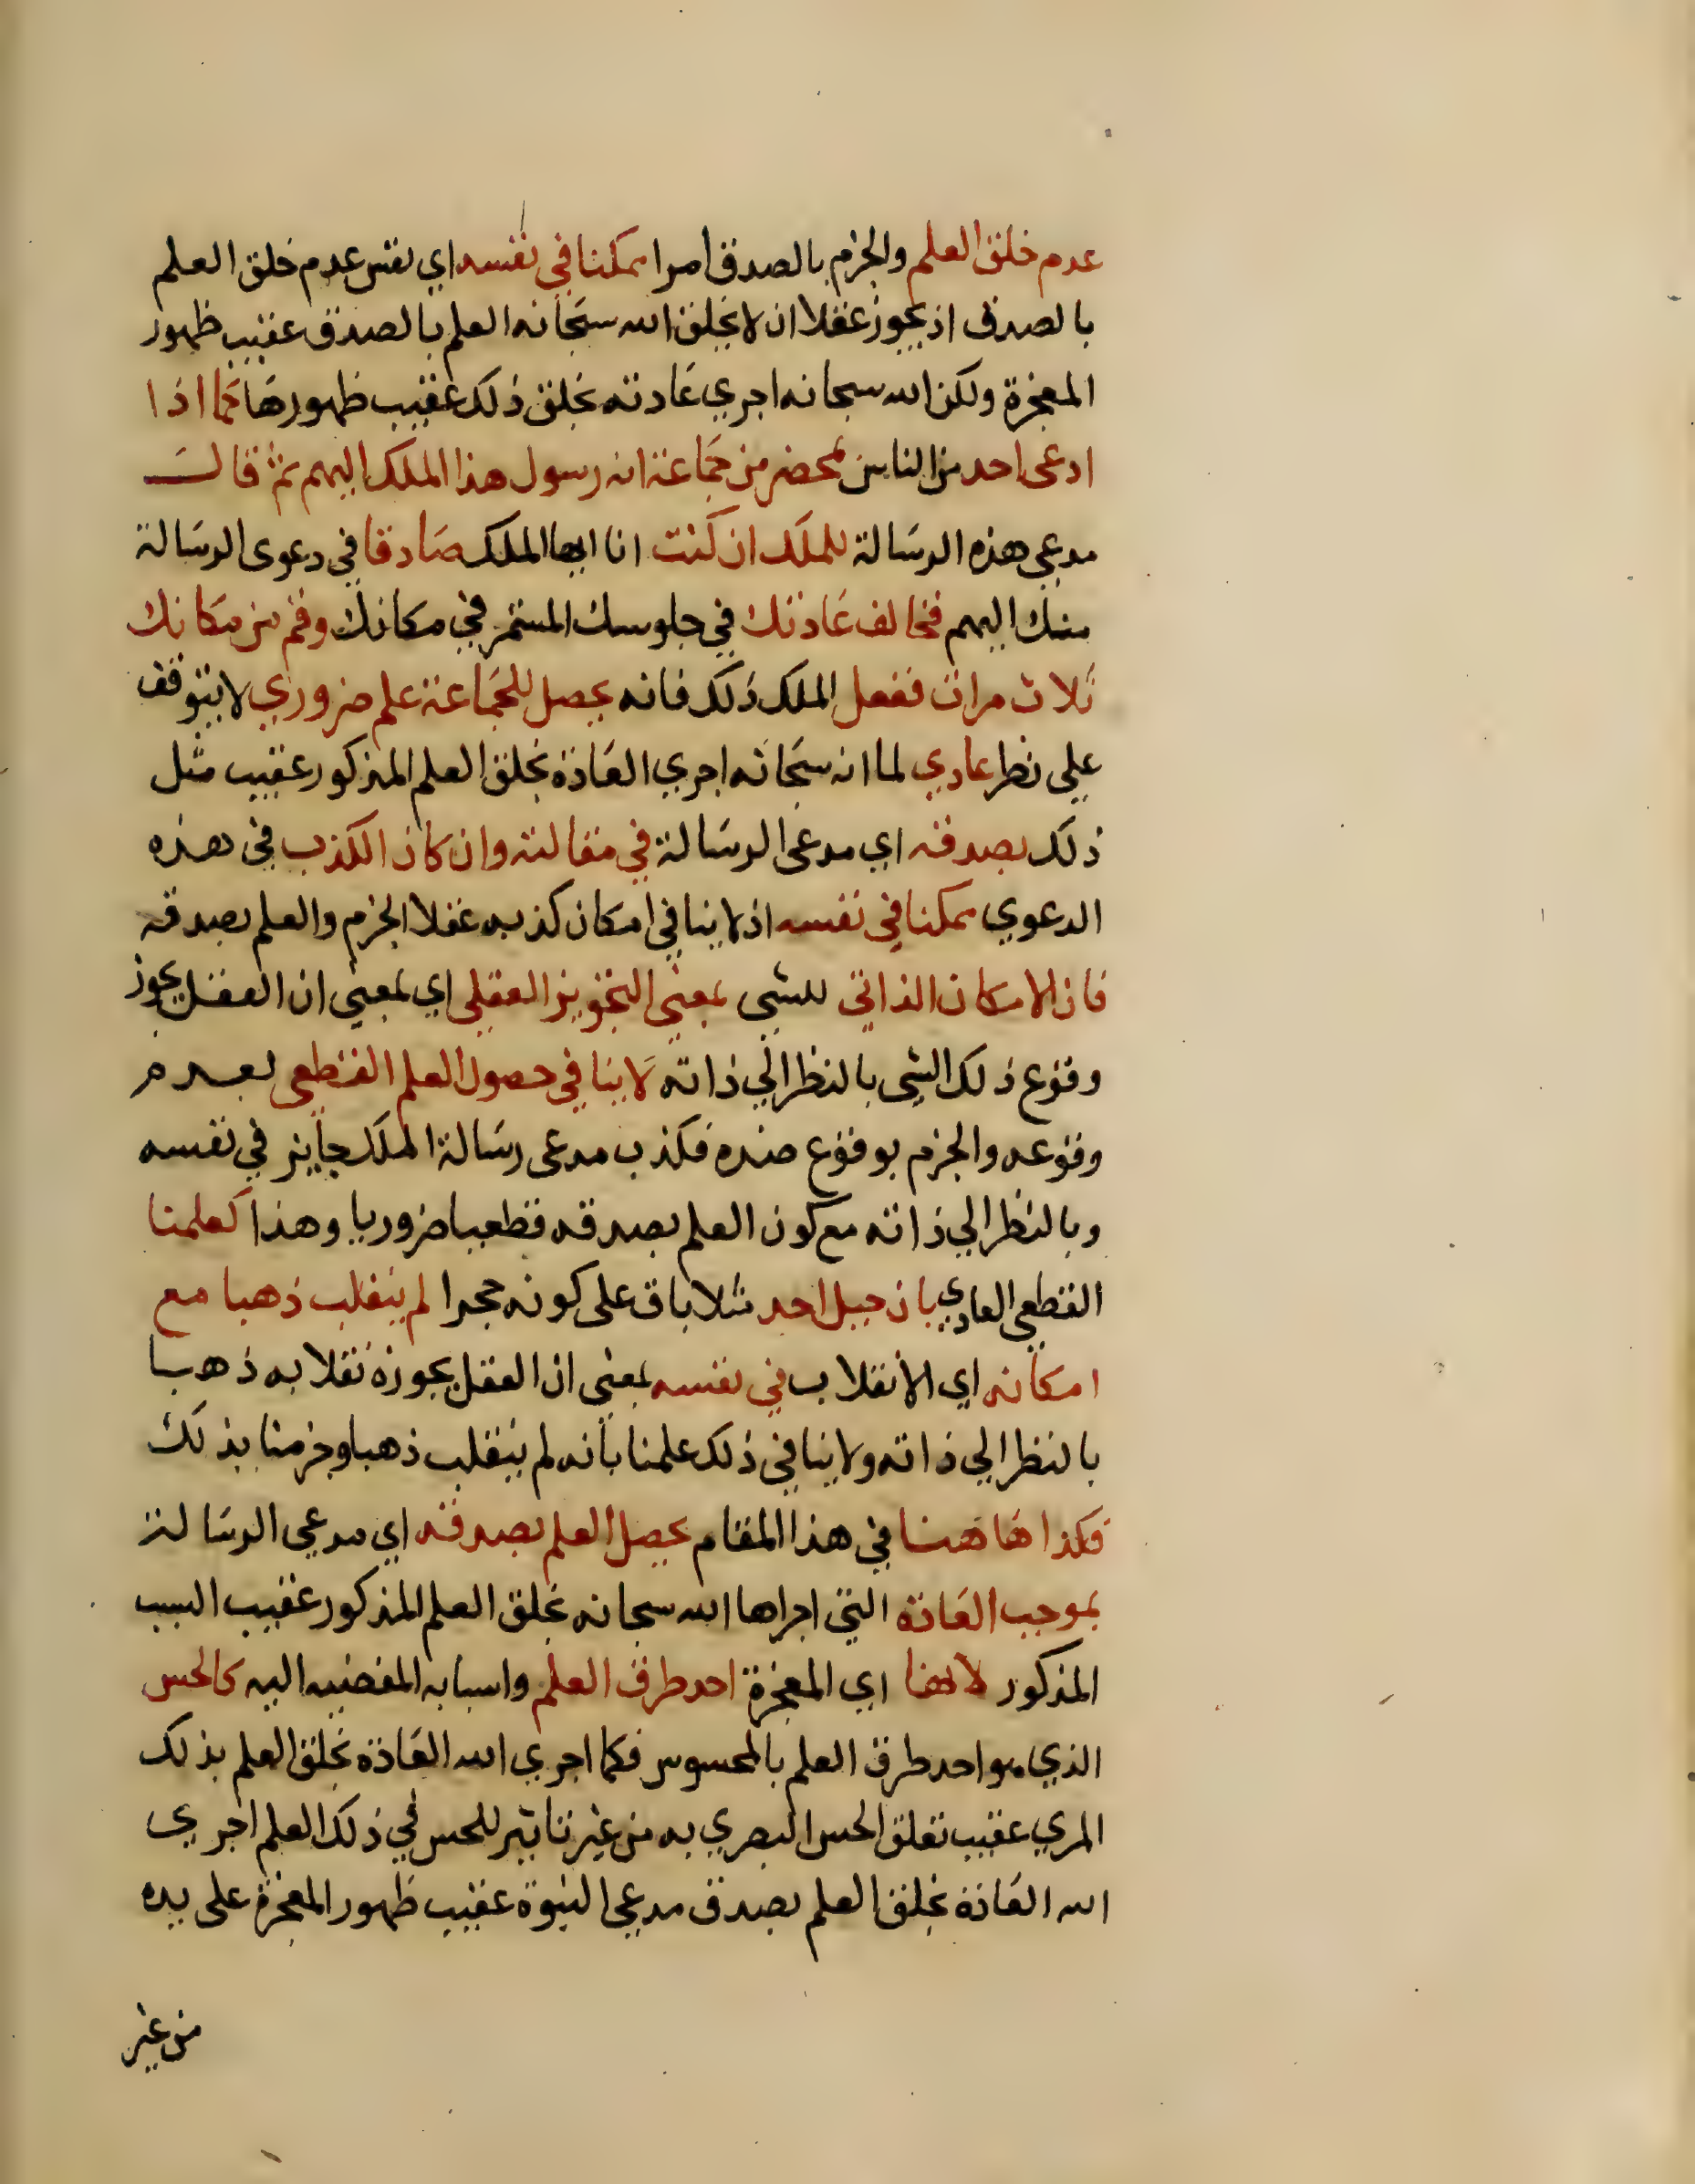 عدم خلق العلم والجزم بالصدق امرا ممكنا في نفسه اي نفس عدم خلق العلم
بالصدق اذ يجوز عقلا ان لا يخلق الله سبحانه العلم بالصدق عقيب ظهور
المعجزة ولكن الله سبحانه اجري عادته بخلق ذلك عقيب ظهورها كما اذا
ادعى احد من الناس بمحضر من جماعة انه رسول هذا الملك اليهم ثم قال
مدعي هذه الرسالة للملك ان كنت انا ايها الملك صادقا في دعوى الرسالة
منك اليهم فخالف عادتك في جلوسك المستمر في مكانك وقم من مكانك
ثلاث مرات ففعل الملك ذلك فانه يحصل للجماعة علم ضروري لا يتوقف
علي نظر عادي لما انه سبحانه اجري العادة بخلق العلم المذكور عقيب مثل
ذلك بصدقه اي مدعى الرسالة في مقالته وان كان الكذب في هذه
الدعوي ممكنا في نفسه اذ لا ينافي امكان كذبه عقلا الجزم والعلم بصدقه
فان الامكان الذاتي للشي بمعني التجويز العقلي اي بمعني ان العقل يجوز
وقوع ذلك الشي بالنظر الي ذاته لا ينافي حصول العلم القطعي بعدم
وقوعه والجزم بوقوع ضده فكذب مدعى رسالة الملك جايز في نفسه
وبالنظر الي ذاته مع كون العلم بصدقه قطعيا ضروريا وهذا كعلمنا
القطعي العادي بان جبل احد مثلا باق على كونه حجرا لم ينقلب ذهبا مع
امكانه اي الانقلاب في نفسه بمعني ان العقل يجوز انقلابه ذهبا
بالنظر الي ذاته ولا ينافي ذلك علمنا بانه لم ينقلب ذهبا وجزمنا بذلك
فكذا هاهنا في هذا المقام يحصل العلم بصدقه اي مدعي الرسالة
بموجب العادة التي اجراها الله سبحانه بخلق العلم المذكور عقيب السبب
المذكور لانها اي المعجزة احد طرق العلم واسبابه المفضيه اليه كالحس
الذي هو احد طرق العلم بالمحسوس فكما اجري الله العادة بخلق العلم بذلك
المري عقيب تعلق الحس البصري به من غير تاثير للحس في ذلك العلم اجري
الله العادة بخلق العلم بصدق مدعي النبوة عقيب ظهور المعجزة على يده
من غير